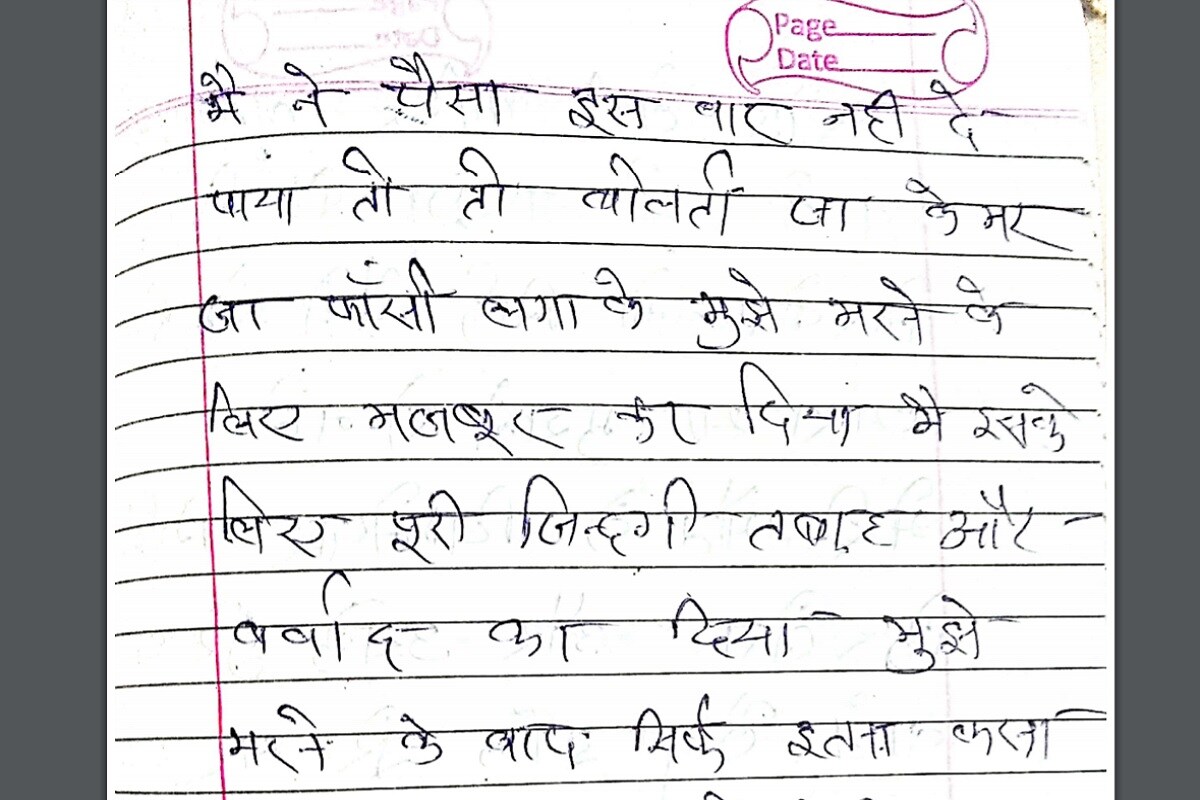 Page
Date
मै ने पैसा इस बार नही दे
पाया तो तो बोलती जा के मर
जा फाँसी लगा के मुझे मरने के
लिए मजबूर कर दिया मै इसके
लिए पूरी जिन्दगी तबाह और
बर्वाद कर दिया मुझे
मरने के बाद सिर्फ इतना करना